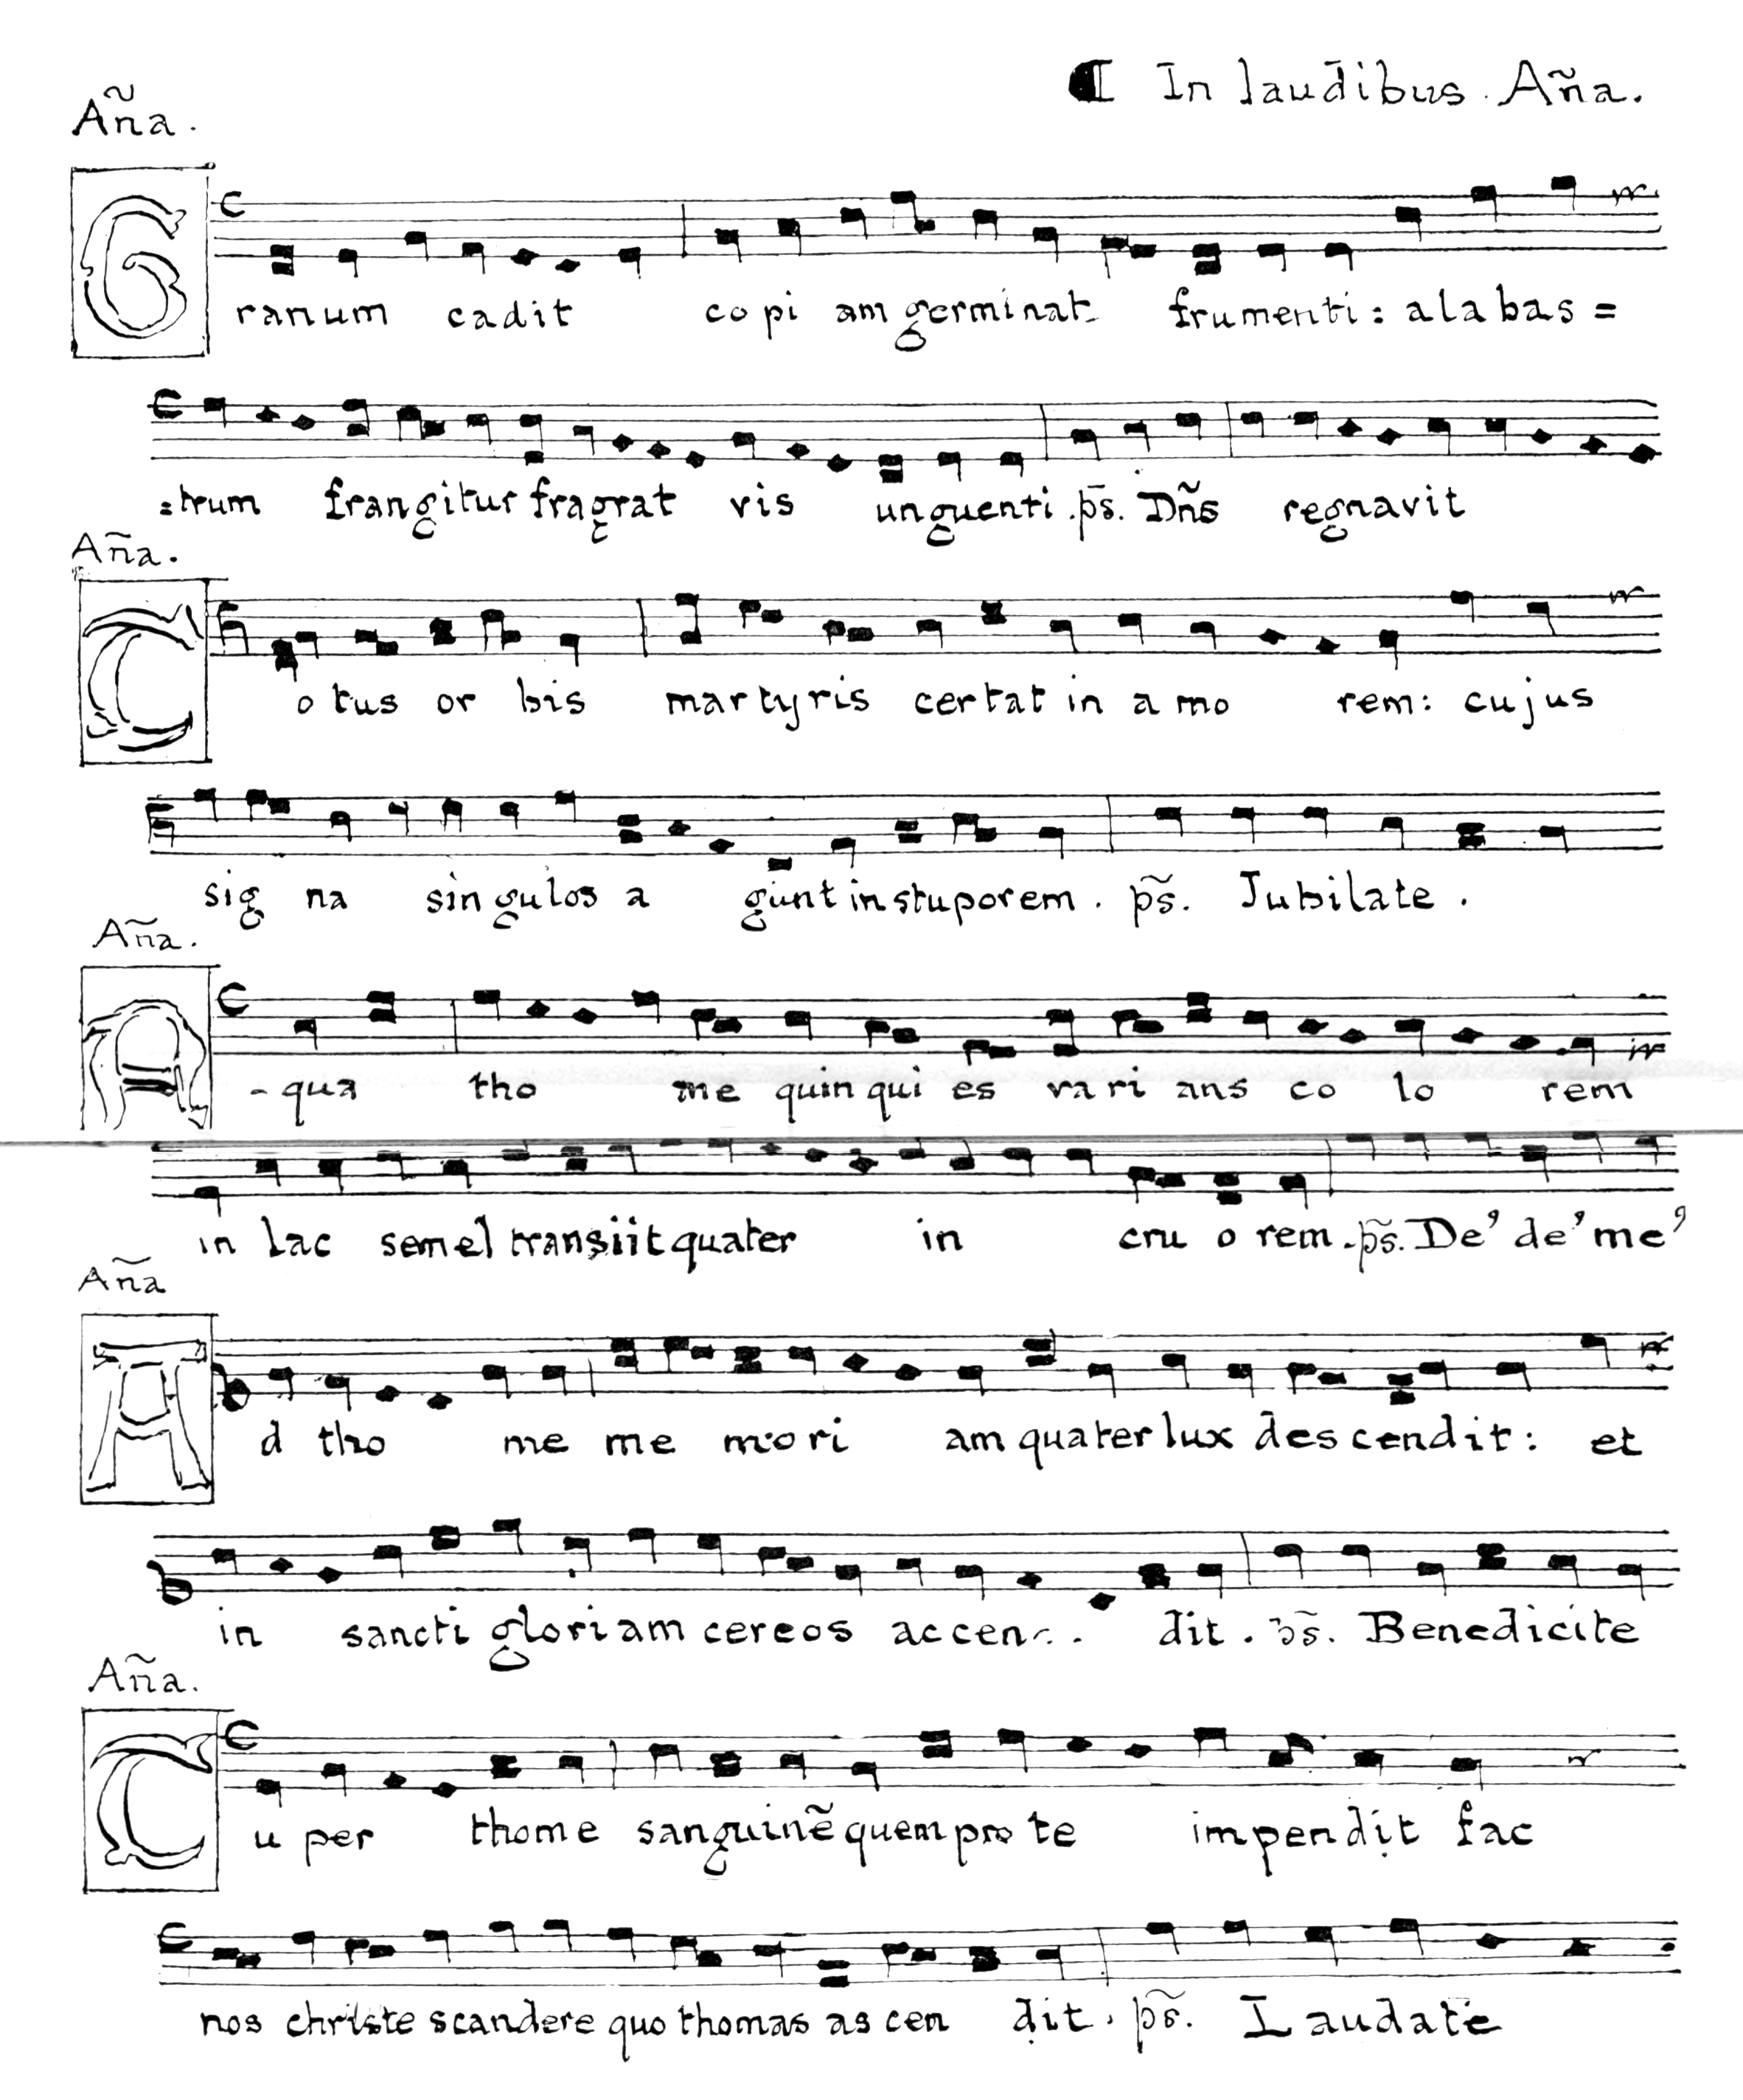 ¶ In laudibus. Aña.
Aña.
G ranum cadit co pi am germinat frumenti : alabas =
=trum frangitur fragrat vis unguenti . ps̃. Dñs regnavit
Aña.
T o tus or bis mar ty ris certat in a mo rem : cujus
sig na singulos a gunt in stuporem . ps̃. Jubilate .
Aña.
A -qua tho me quin qui es va ri ans co lo rem
in lac semel transiit quater in cru o rem . ps̃. De' de' me'
Aña
A d tho me me mori am quater lux des cendit : et
in sancti gloriam cereos accen dit . ps̃. Benedicite
Aña.
T u per thome sanguinẽ quem pro te impendit fac
nos christe scandere quo thomas as cen dit . ps̃. Laudate